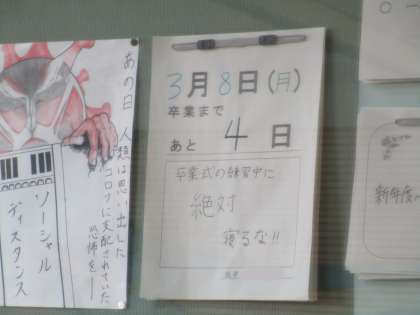 あの日 人類は思い出した
コロナに支配されていた
恐怖を――
ソーシャル
ディスタンス
3月8日(月)
卒業まで
あと 4 日
卒業式の練習中に
絶対
寝るな!!
新年度